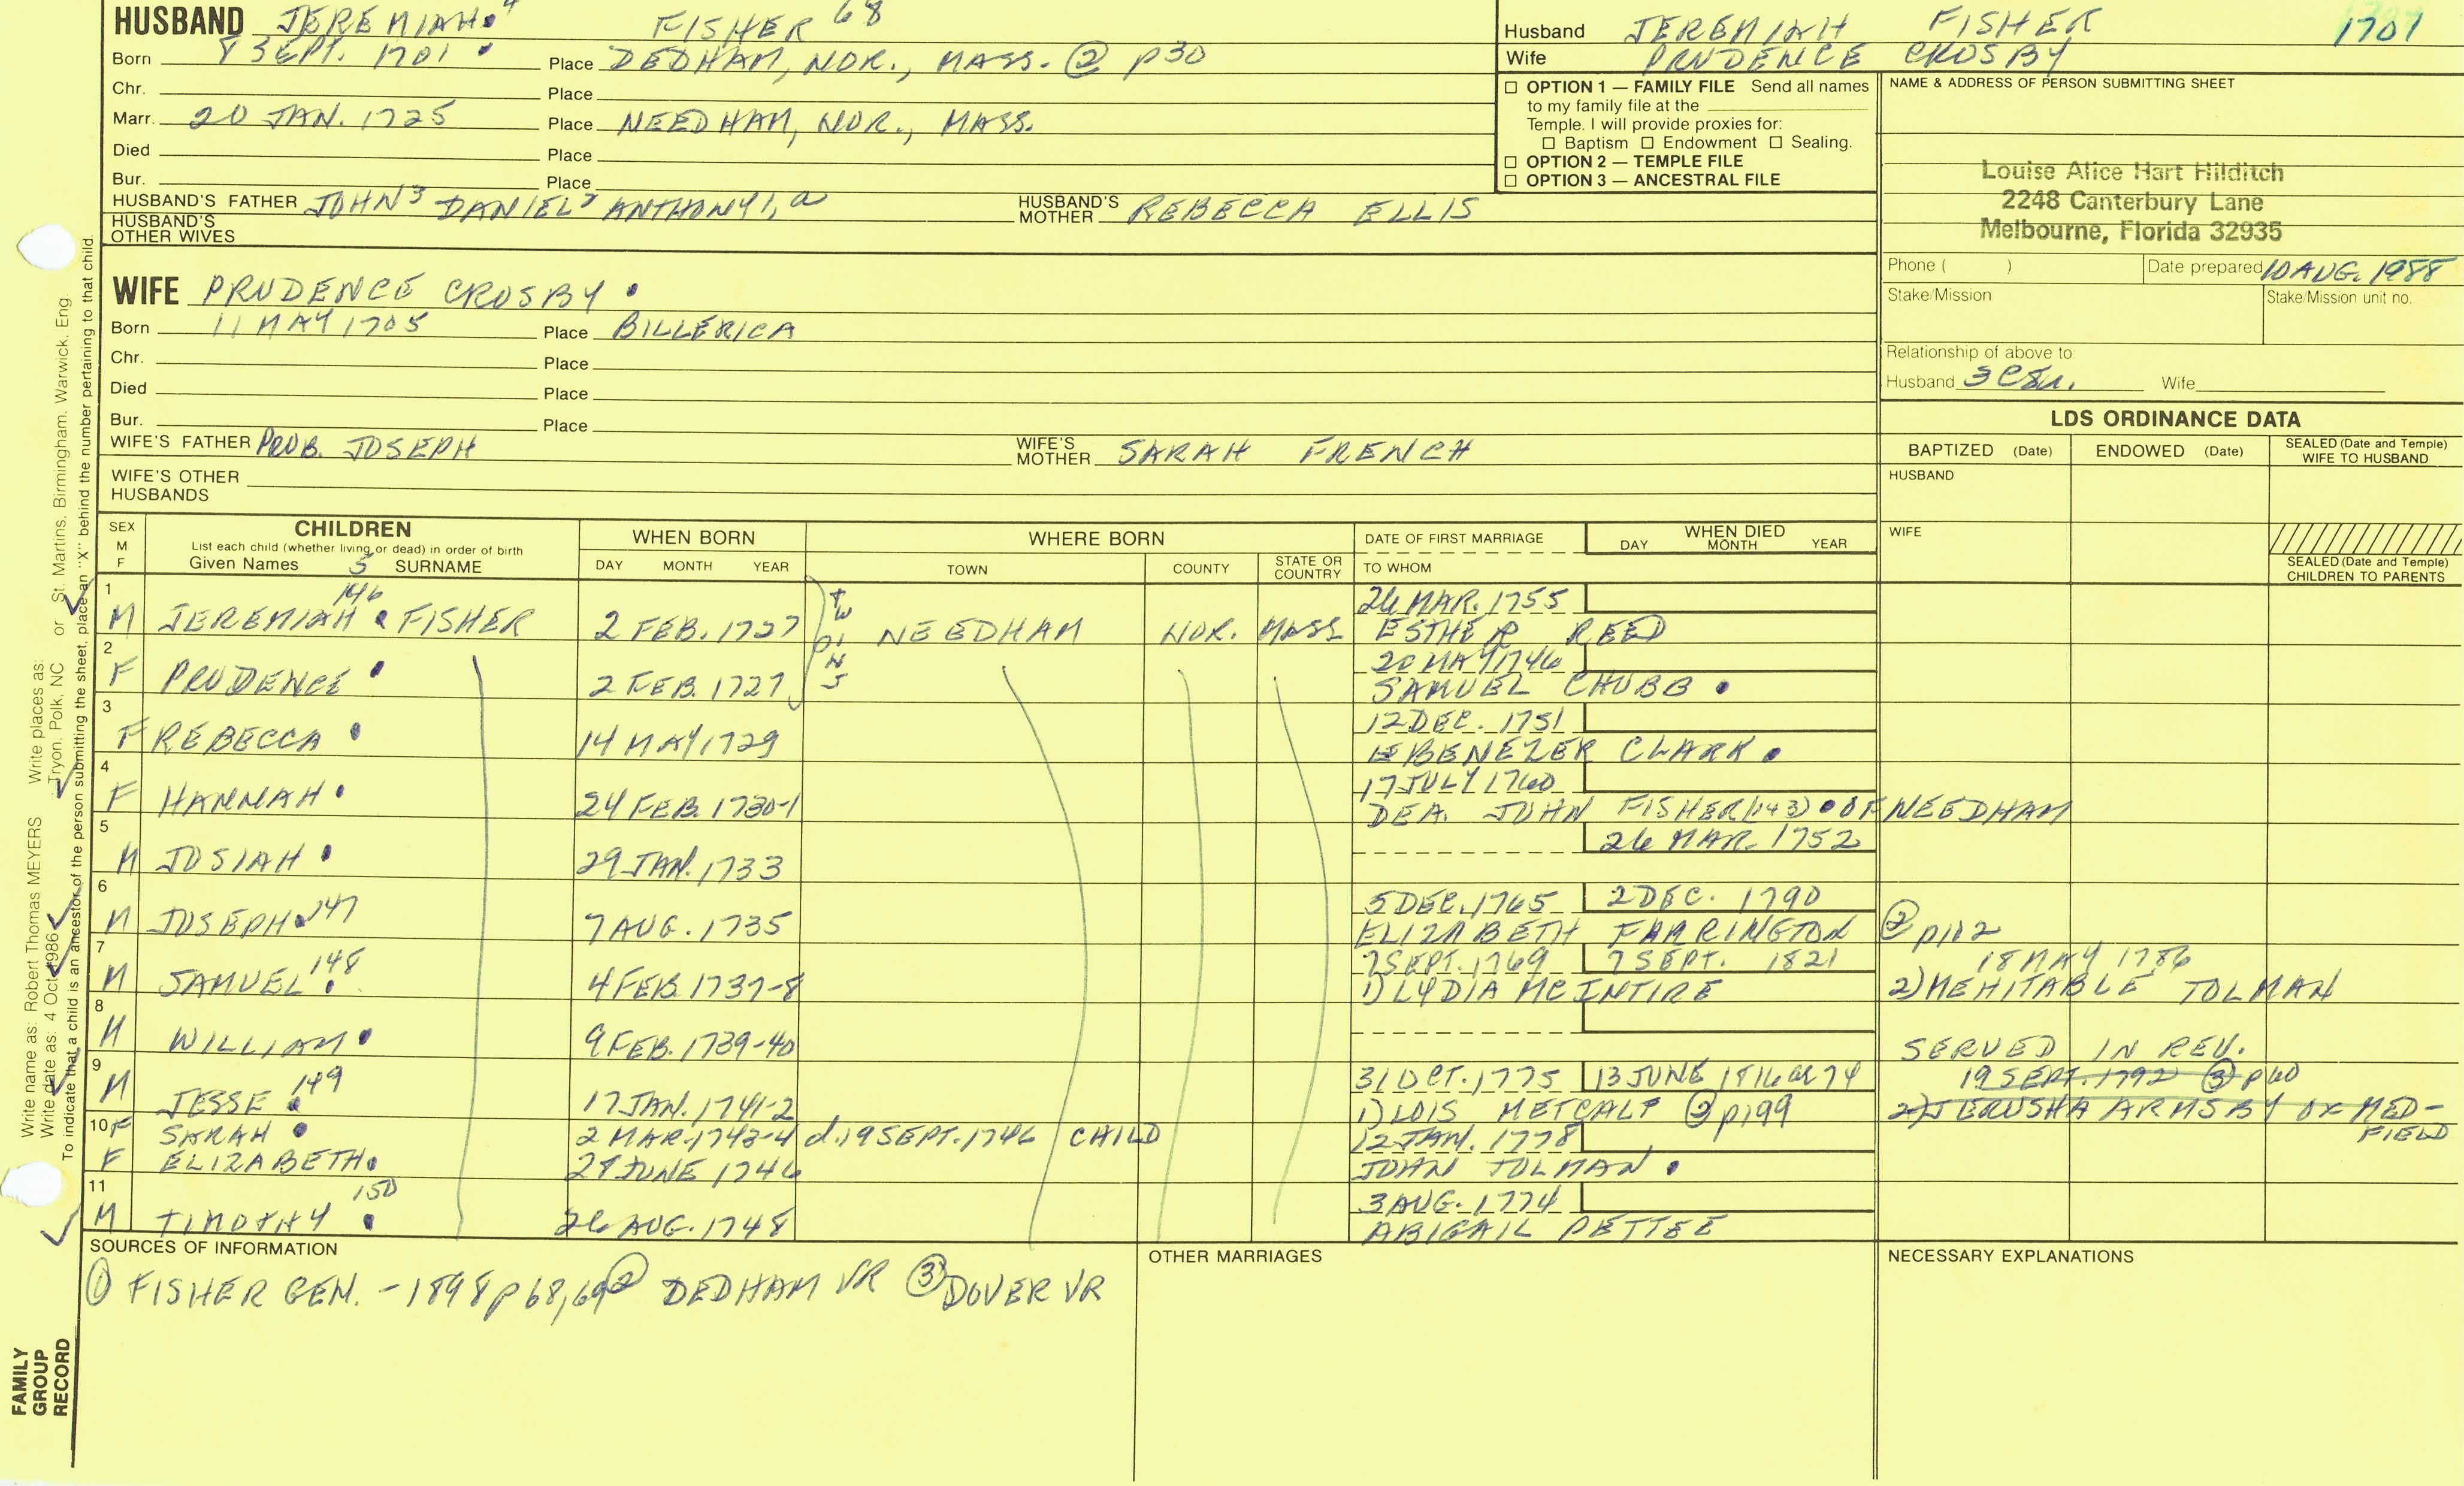 HUSBAND JEREMIAH 4 FISHER 68
Born 8 SEPT. 1701 Place DEDHAM, NOR., MASS. ② p30
Chr. Place
Marr. 20 JAN. 1725 Place NEEDHAM, NOR., MASS.
Died Place
Bur. Place
HUSBAND'S FATHER JOHN3 DANIEL2 ANTHONY1, a HUSBAND'S MOTHER REBECCA ELLIS
HUSBAND'S OTHER WIVES
WIFE PRUDENCE CROSBY
Born 11 MAY 1705 Place BILLERICA
Chr. Place
Died Place
Bur. Place
WIFE'S FATHER PROB. JOSEPH WIFE'S MOTHER SARAH FRENCH
WIFE'S OTHER HUSBANDS
Husband JEREMIAH FISHER 1701
Wife PRUDENCE CROSBY
☐ OPTION 1 — FAMILY FILE Send all names
to my family file at the
Temple. I will provide proxies for:
☐ Baptism ☐ Endowment ☐ Sealing.
☐ OPTION 2 — TEMPLE FILE
☐ OPTION 3 — ANCESTRAL FILE
NAME & ADDRESS OF PERSON SUBMITTING SHEET
Louise Alice Hart Hilditch
2248 Canterbury Lane
Melbourne, Florida 32935
Phone ( ) Date prepared 10 AUG. 1988
Stake/Mission Stake/Mission unit no.
Relationship of above to:
Husband Wife
LDS ORDINANCE DATA
BAPTIZED (Date) ENDOWED (Date) SEALED (Date and Temple) WIFE TO HUSBAND
HUSBAND
WIFE
SEALED (Date and Temple)
CHILDREN TO PARENTS
SEX M F CHILDREN WHEN BORN WHERE BORN DATE OF FIRST MARRIAGE WHEN DIED
List each child (whether living or dead) in order of birth DAY MONTH YEAR
Given Names 5 SURNAME DAY MONTH YEAR TOWN COUNTY STATE OR COUNTRY TO WHOM
1 146 26 MAR. 1755
M JEREMIAH FISHER 2 FEB. 1727 TWINS NEEDHAM NOR. MASS ESTHER REED
2 20 MAY 1746
F PRUDENCE 2 FEB. 1727 SAMUEL CHUBB
3 12 DEC. 1751
F REBECCA 14 MAY 1729 EBENEZER CLARK
4 17 JULY 1760
F HANNAH 24 FEB. 1730-1 DEA. JOHN FISHER (143) OF NEEDHAM
5 26 MAR. 1752
M JOSIAH 29 JAN. 1733
6 5 DEC. 1765 2 DEC. 1790
M JOSEPH 147 7 AUG. 1735 ELIZABETH FARRINGTON ② p112
7 7 SEPT. 1769 7 SEPT. 1821 18 MAY 1786
M SAMUEL 148 4 FEB. 1737-8 1) LYDIA MCINTIRE 2) MEHITABLE TOLMAN
8
M WILLIAM 9 FEB. 1739-40 SERVED IN REV.
9 31 OCT. 1775 13 JUNE 1816 or 74 19 SEPT. 1792 ③ p60
M JESSE 149 17 JAN. 1741-2 1) LOIS METCALF ② p199 2) JERUSHA ARMSBY OF MEDFIELD
10 F SARAH 2 MAR. 1743-4 d. 19 SEPT. 1746 CHILD 12 JAN. 1778
F ELIZABETH 27 JUNE 1746 JOHN TOLMAN
11 150 3 AUG. 1774
M TIMOTHY 26 AUG. 1748 ABIGAIL PETTEE
SOURCES OF INFORMATION OTHER MARRIAGES NECESSARY EXPLANATIONS
① FISHER GEN. - 1898 p68,69 ② DEDHAM VR ③ DOVER VR
Write name as: Robert Thomas MEYERS Write places as: Tryon, Polk, NC or St. Martins, Birmingham, Warwick, Eng
Write date as: 4 Oct 1986
To indicate that a child is an ancestor of the person submitting the sheet, place an "X" behind the number pertaining to that child.
FAMILY
GROUP
RECORD